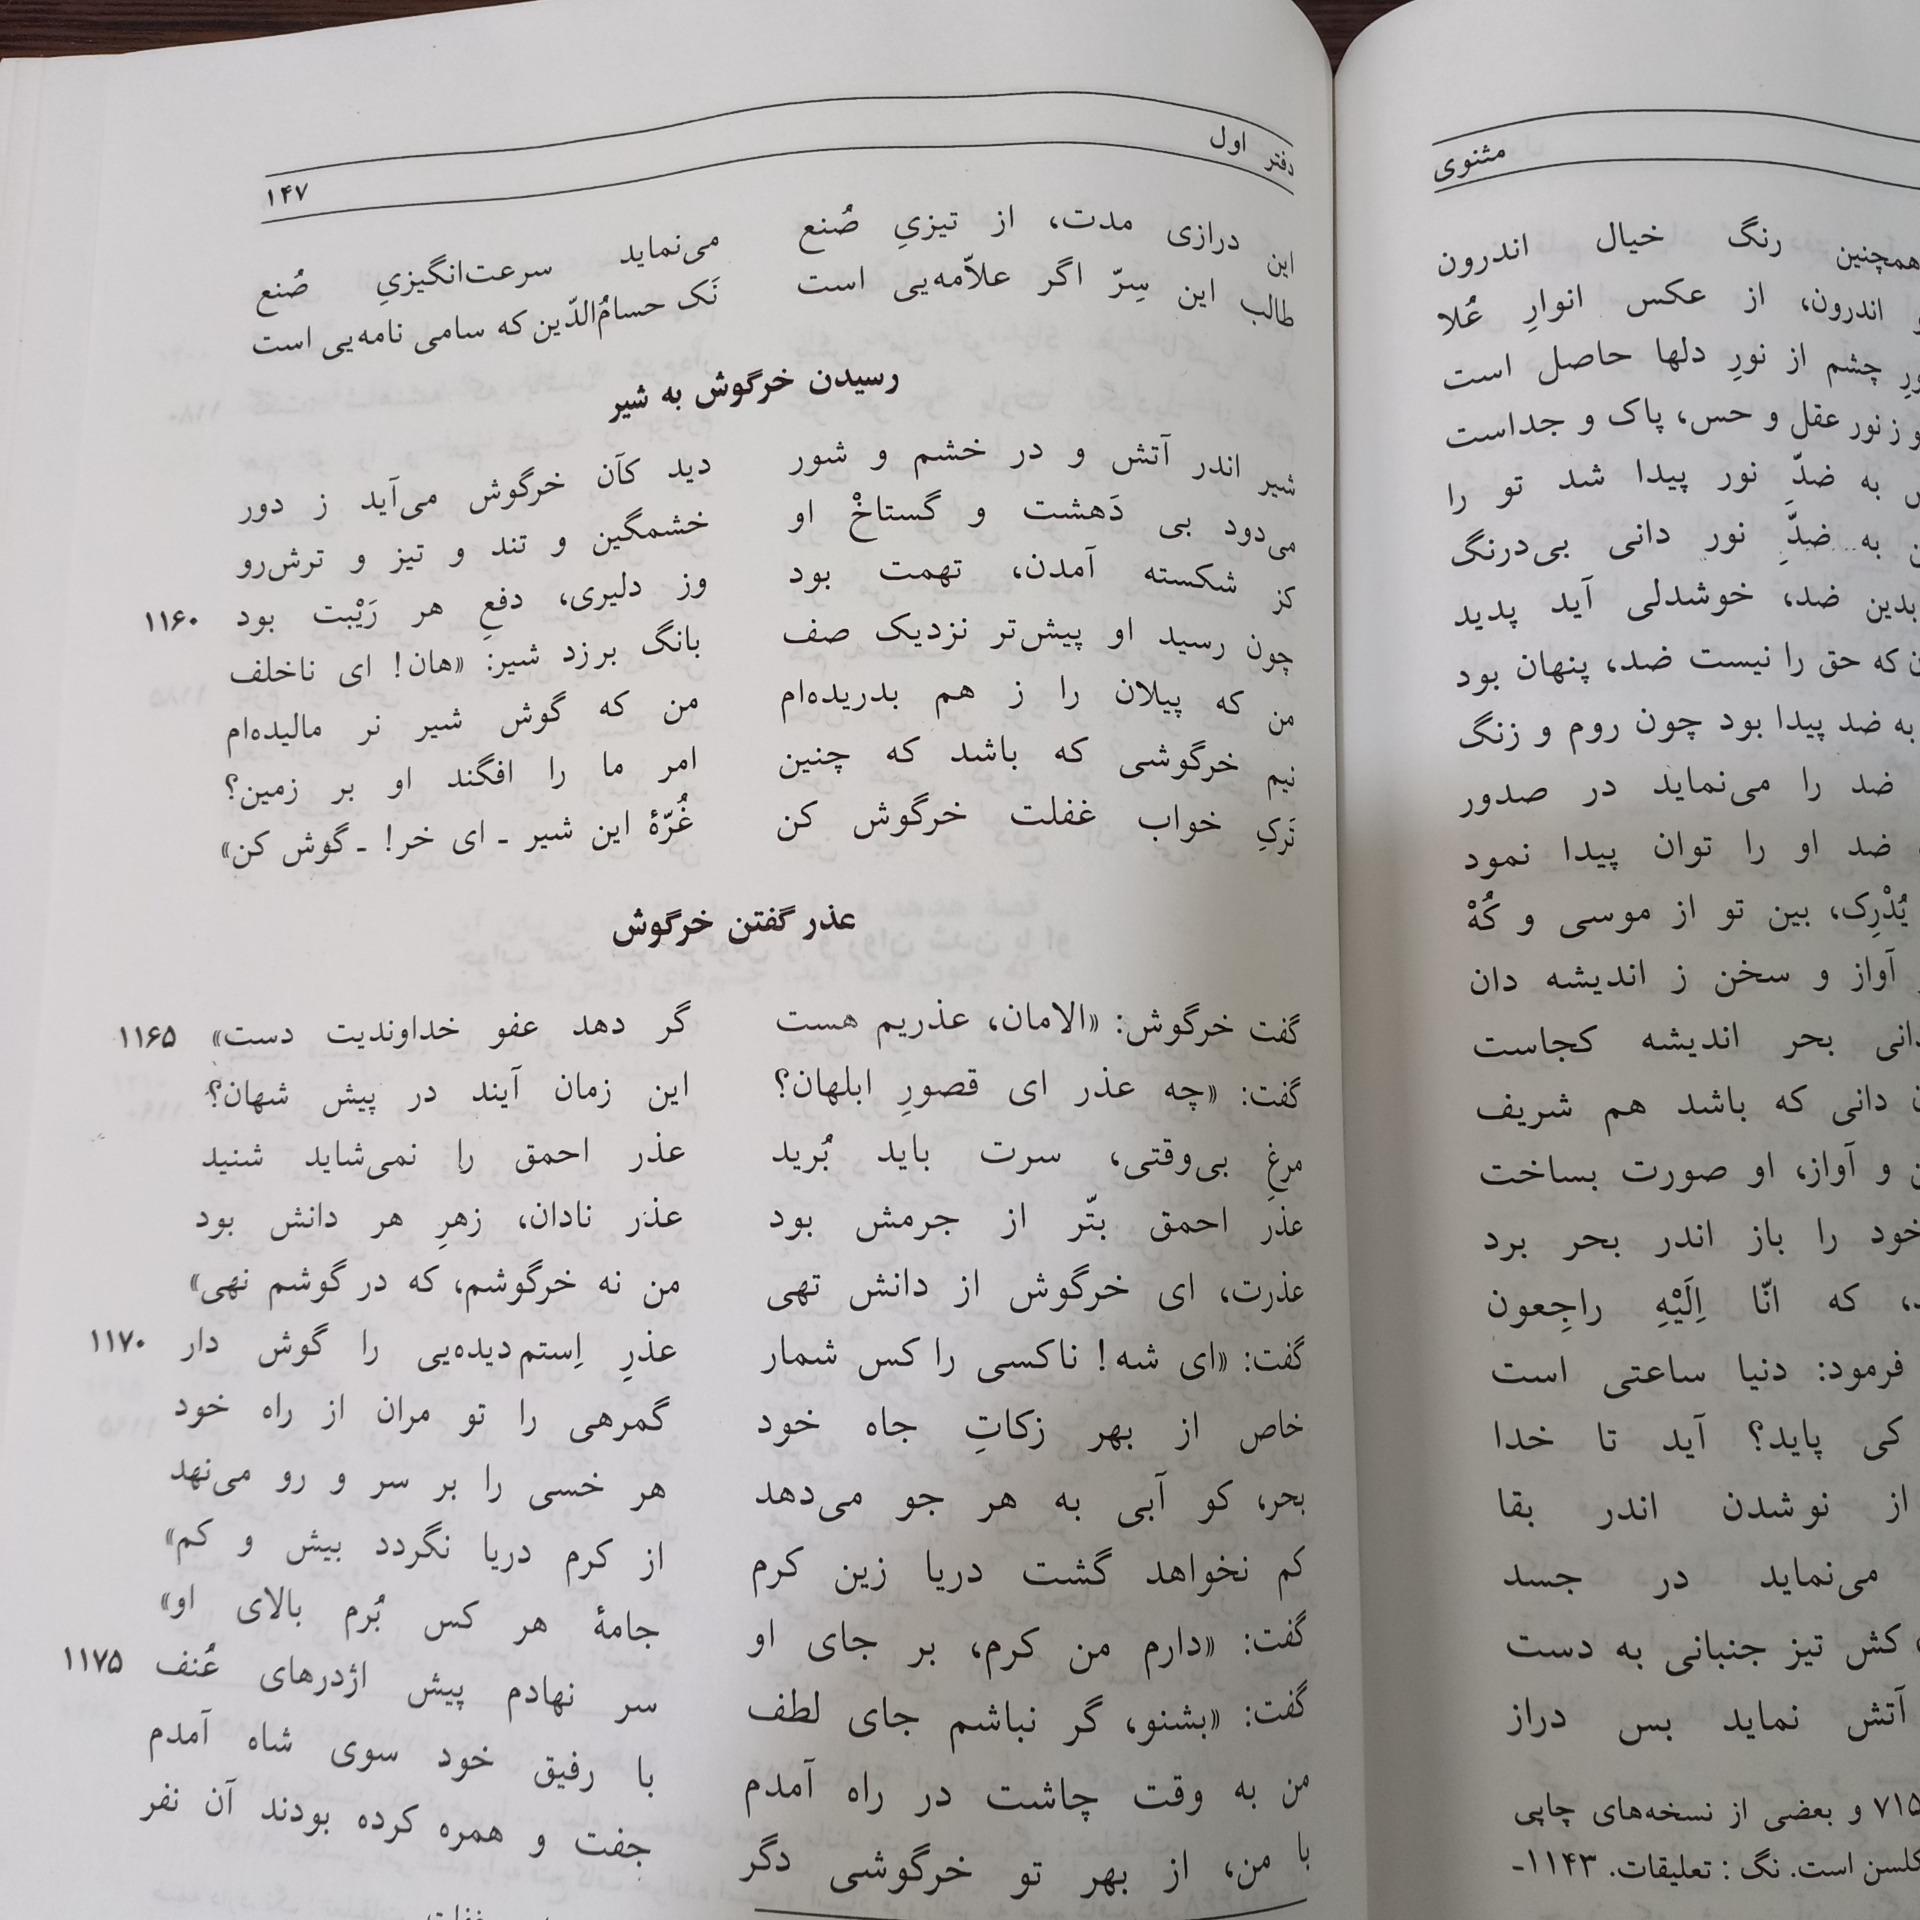 مثنوی
همچنین رنگ خیال اندرون
اندرون، از عکس انوارِ عُلا
چشم از نورِ دلها حاصل است
و ز نور عقل و حس، پاک و جداست
به ضدِّ نور پیدا شد تو را
به ضدِّ نور دانی بی‌درنگ
بدین ضد، خوشدلی آید پدید
که حق را نیست ضد، پنهان بود
به ضد پیدا بود چون روم و زنگ
ضد را می‌نماید در صدور
ضد او را توان پیدا نمود
یُدْرِک، بین تو از موسی و کُهْ
آواز و سخن ز اندیشه دان
بحر اندیشه کجاست
دانی که باشد هم شریف
و آواز، او صورت بساخت
خود را باز اندر بحر برد
که انّا اِلَیْهِ راجِعون
فرمود: دنیا ساعتی است
کی پاید؟ آید تا خدا
از نو شدن اندر بقا
می‌نماید در جسد
کش تیز جنبانی به دست
آتش نماید بس دراز
۷۱۵ و بعضی از نسخه‌های چاپی
است. نگ : تعلیقات. ۱۱۴۳-
دفتر اول ۱۴۷
این درازی مدت، از تیزیِ صُنع می‌نماید سرعت‌انگیزیِ صُنع
طالب این سِرّ اگر علاّمه‌یی است نَک حسامُ‌الدّین که سامی نامه‌یی است
رسیدن خرگوش به شیر
شیر اندر آتش و در خشم و شور دید کآن خرگوش می‌آید ز دور
می‌دود بی دَهشت و گستاخْ او خشمگین و تند و تیز و ترش‌رو
کز شکسته آمدن، تهمت بود وز دلیری، دفعِ هر رَیْبت بود ۱۱۶۰
چون رسید او پیش‌تر نزدیک صف بانگ برزد شیر: «هان! ای ناخلف
من که پیلان را ز هم بدریده‌ام من که گوش شیر نر مالیده‌ام
نیم خرگوشی که باشد که چنین امر ما را افگند او بر زمین؟
تَرکِ خواب غفلت خرگوش کن غُرّهٔ این شیر ـ ای خر! ـ گوش کن»
عذر گفتن خرگوش
گفت خرگوش: «الامان، عذریم هست گر دهد عفو خداوندیت دست» ۱۱۶۵
گفت: «چه عذر ای قصورِ ابلهان؟ این زمان آیند در پیش شهان؟
مرغِ بی‌وقتی، سرت باید بُرید عذر احمق را نمی‌شاید شنید
عذر احمق بتّر از جرمش بود عذر نادان، زهرِ هر دانش بود
عذرت، ای خرگوش از دانش تهی من نه خرگوشم، که در گوشم نهی»
گفت: «ای شه! ناکسی را کس شمار عذرِ اِستم دیده‌یی را گوش دار ۱۱۷۰
خاص از بهر زکاتِ جاه خود گمرهی را تو مران از راه خود
بحر، کو آبی به هر جو می‌دهد هر خسی را بر سر و رو می‌نهد
کم نخواهد گشت دریا زین کرم از کرم دریا نگردد بیش و کم»
گفت: «دارم من کرم، بر جای او جامهٔ هر کس بُرم بالای او»
گفت: «بشنو، گر نباشم جای لطف سر نهادم پیش اژدرهای عُنف ۱۱۷۵
من به وقت چاشت در راه آمدم با رفیق خود سوی شاه آمدم
با من، از بهر تو خرگوشی دگر جفت و همره کرده بودند آن نفر